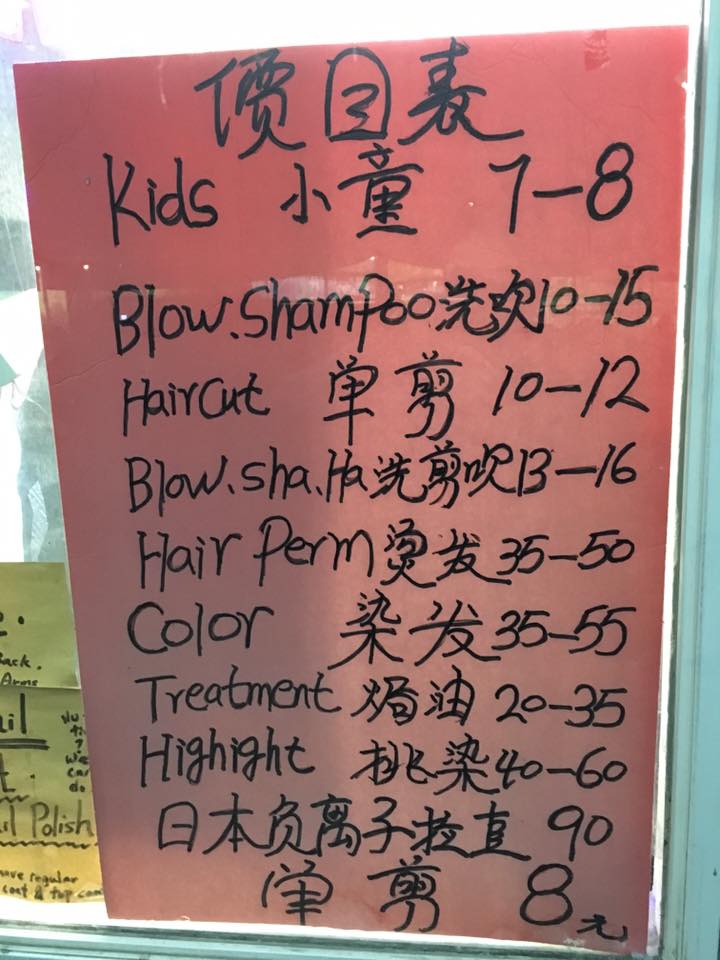 價目表
Kids 小童 7-8
Blow.Shampoo.洗吹10-15
Haircut 单剪 10-12
Blow.sha.Ha洗剪吹13-16
Hair Perm烫发35-50
Color 染发35-55
Treatment 焗油 20-35
Highight 挑染40-60
日本负离子拉直 90
单剪 8元
ack.
Arms
il Polish
have regular
coat & top coa